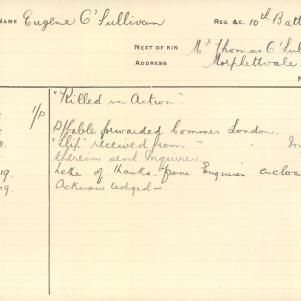 NAME Eugene O'Sullivan REG. &C. 10th Batt
NEXT OF KIN Mr Thomas O'Sul
ADDRESS Morphettvale
"Killed in Action".
1/P
Cable forwarded Commr London.
"Slip" received from " In
therein sent Inquirer.
19. Letter of thanks from Enquirer enclos
19. Acknowledged—